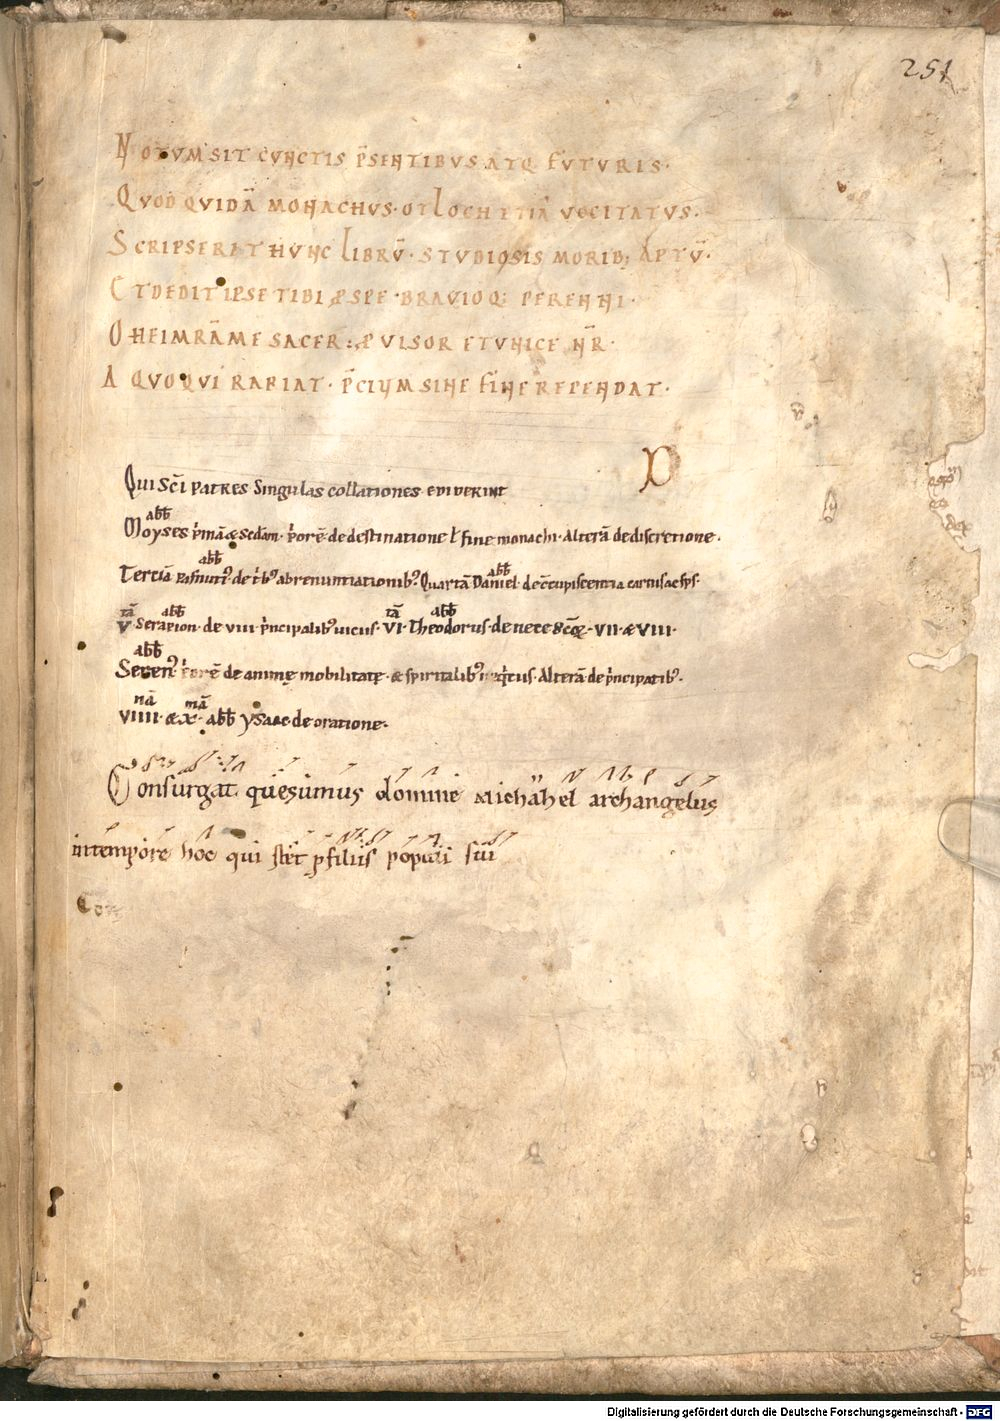 251
NOTUM SIT CUNCTIS P̄SENTIBUS ATQ FUTURIS·
QUOD QUIDĀ MONACHUS·OTLOCH ETIĀ VOCITATUS·
SCRIPSERAT HUNC LIBRŪ·STUDIOSIS MORIB; APTŪ·
ET DEDIT IPSE TIBI ꝓ SPE·BRAVIOQ; PERENNI·
O HEIMRĀME SACER: ꝓVISOR ET UNICE NR̄·
A QUOQUI RAPIAT·P̄CIUM SINE FINE REPENDAT·
P
Qui sc̄i patres singulas collationes ediderint
abb̄
Moyses p̍mā & sc̄dam· p̍orē· de destinatione ł fine monachi· Alterā de discretione·
abb̄ abb̄
Terciā Pafnuti᾽· de t̍b᾽ abrenuntiationib᾽· Quartā Daniel· de c̄cupiscentia carnis ac sp̄s·
tā abb̄ tā abb̄
V Serapion· de VIII p̍ncipalib᾽ uiciis· VI· Theodorus· de nece sc̄oꝝ· VII· & VIII·
abb̄
Seren᾽· p̍orē de animę mobilitatę· & spiritalib᾽ neq̍tiis· Alterā de p̍ncipatib᾽·
nā mā
VIIII· & X· abb̄ ysaac de oratione·
Consurgat quesumus domine Michahel archangelus
in tempore hoc qui stet ꝓ filiis populi sui
Con
Digitalisierung gefördert durch die Deutsche Forschungsgemeinschaft - DFG